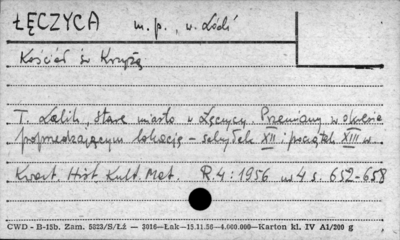 ŁĘCZYCA m. p., w. Łódź
Kościół św Krzyża
T. Lalik, Stare miasto w Łęczycy. Przemiany w okresie
poprzedzającym lokację - schyłek XII i początek XIII w.
Kwart. Hist. Kult. Mat. R. 4: 1956 nr 4 s. 652-658
CWD - B-15b. Zam. 5823/S/Łż — 3016—Łak—15.11.56—4.000.000—Karton kl. IV A1/200 g